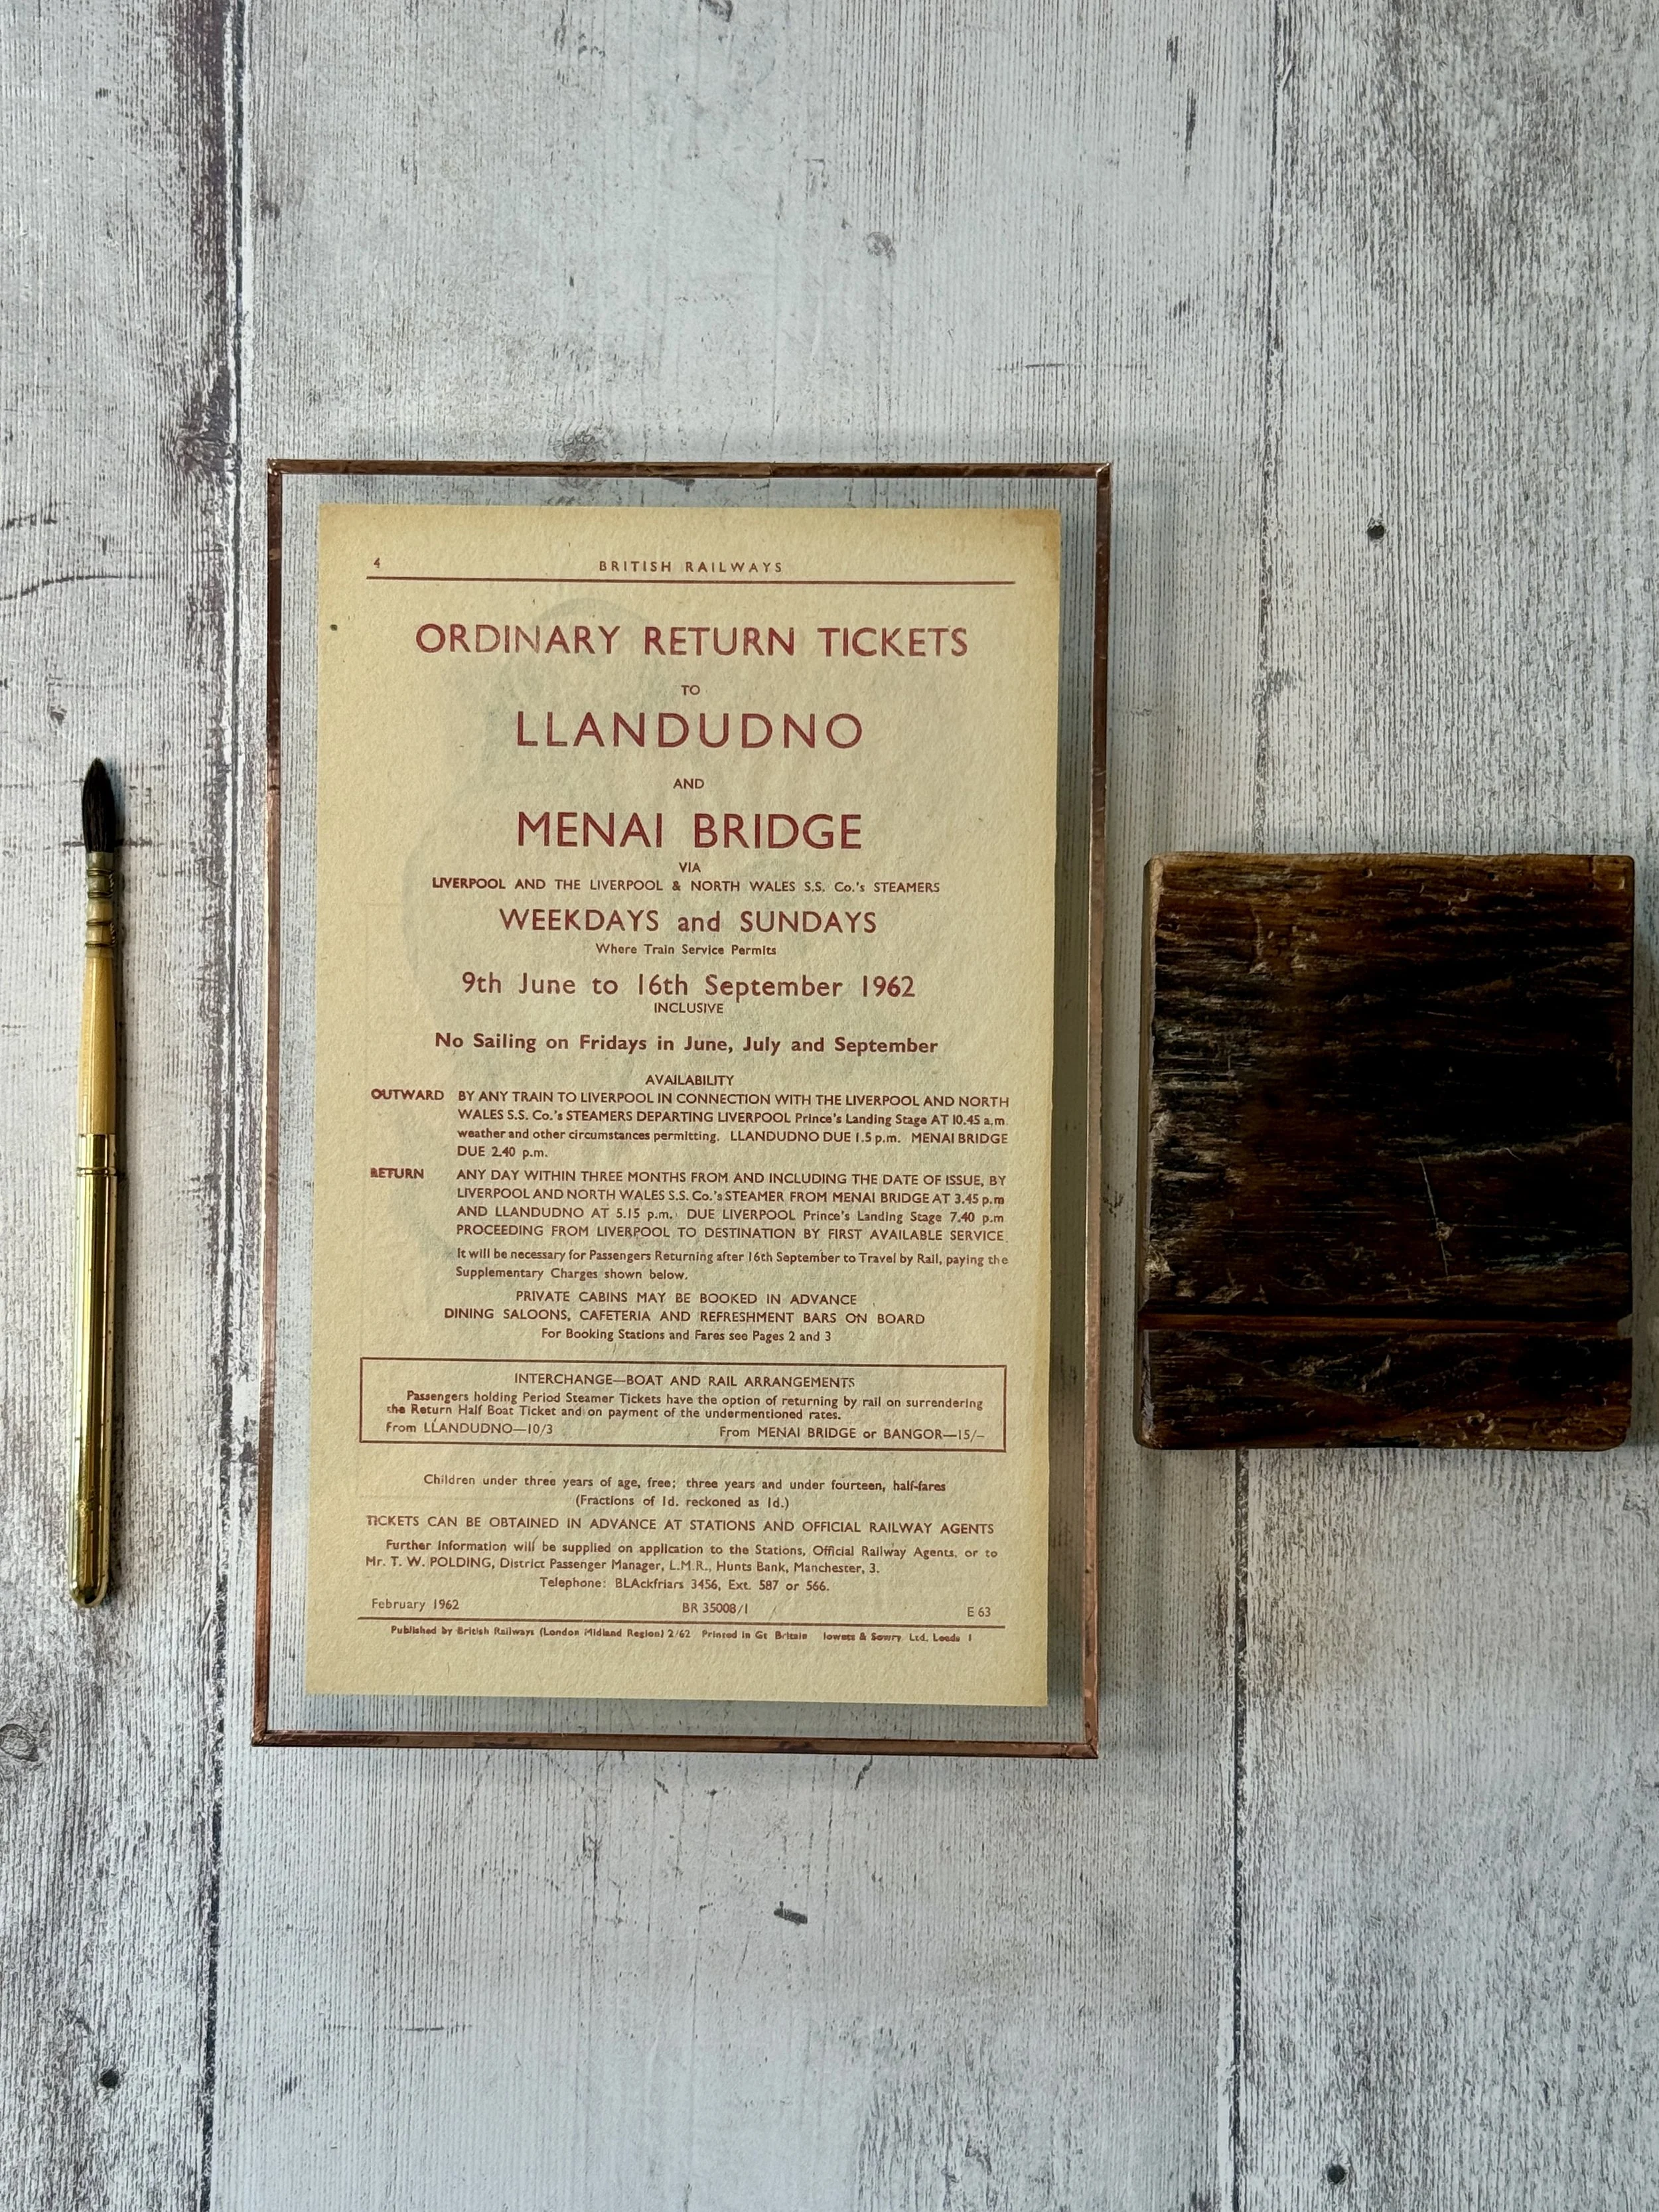 4 BRITISH RAILWAYS
ORDINARY RETURN TICKETS
TO
LLANDUDNO
AND
MENAI BRIDGE
VIA
LIVERPOOL AND THE LIVERPOOL & NORTH WALES S.S. Co.'s STEAMERS
WEEKDAYS and SUNDAYS
Where Train Service Permits
9th June to 16th September 1962
INCLUSIVE
No Sailing on Fridays in June, July and September
AVAILABILITY
OUTWARD BY ANY TRAIN TO LIVERPOOL IN CONNECTION WITH THE LIVERPOOL AND NORTH
WALES S.S. Co.'s STEAMERS DEPARTING LIVERPOOL Prince's Landing Stage AT 10.45 a.m.
weather and other circumstances permitting. LLANDUDNO DUE 1.5 p.m. MENAI BRIDGE
DUE 2.40 p.m.
RETURN ANY DAY WITHIN THREE MONTHS FROM AND INCLUDING THE DATE OF ISSUE, BY
LIVERPOOL AND NORTH WALES S.S. Co.'s STEAMER FROM MENAI BRIDGE AT 3.45 p.m
AND LLANDUDNO AT 5.15 p.m. DUE LIVERPOOL Prince's Landing Stage 7.40 p.m
PROCEEDING FROM LIVERPOOL TO DESTINATION BY FIRST AVAILABLE SERVICE.
It will be necessary for Passengers Returning after 16th September to Travel by Rail, paying the
Supplementary Charges shown below.
PRIVATE CABINS MAY BE BOOKED IN ADVANCE
DINING SALOONS, CAFETERIA AND REFRESHMENT BARS ON BOARD
For Booking Stations and Fares see Pages 2 and 3
INTERCHANGE—BOAT AND RAIL ARRANGEMENTS
Passengers holding Period Steamer Tickets have the option of returning by rail on surrendering
the Return Half Boat Ticket and on payment of the undermentioned rates.
From LLANDUDNO—10/3 From MENAI BRIDGE or BANGOR—15/–
Children under three years of age, free; three years and under fourteen, half-fares
(Fractions of 1d. reckoned as 1d.)
TICKETS CAN BE OBTAINED IN ADVANCE AT STATIONS AND OFFICIAL RAILWAY AGENTS
Further Information will be supplied on application to the Stations, Official Railway Agents, or to
Mr. T. W. POLDING, District Passenger Manager, L.M.R., Hunts Bank, Manchester, 3.
Telephone: BLAckfriars 3456, Ext. 587 or 566.
February 1962 BR 35008/1 E 63
Published by British Railways (London Midland Region) 2/62 Printed in Gt Britain & Sowry Ltd. Leeds 1